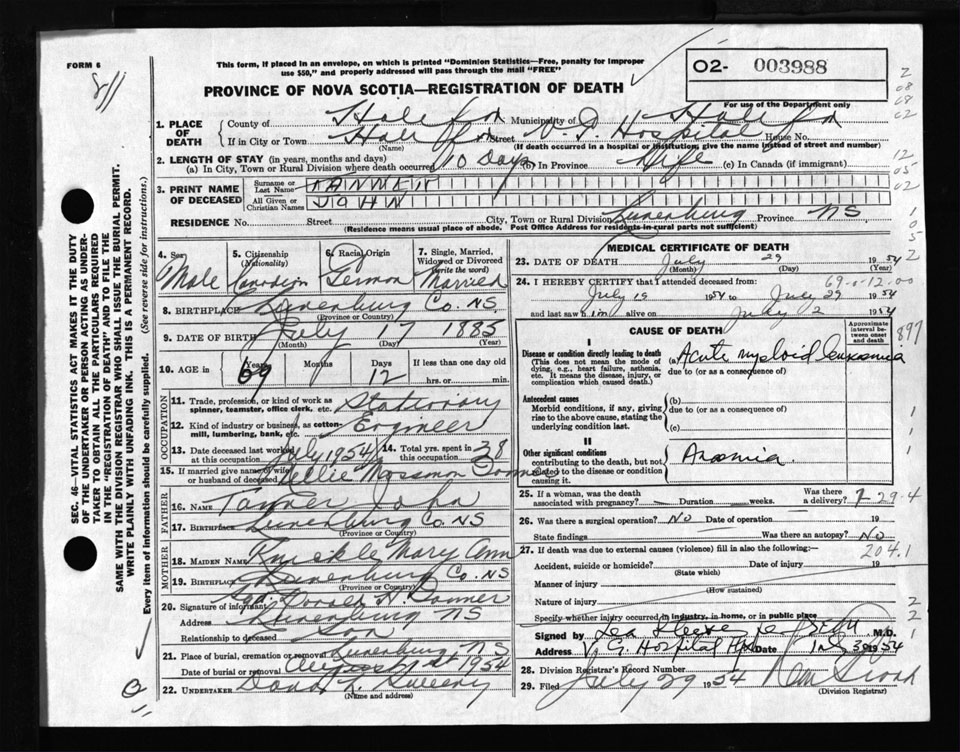 FORM 6
811
This form, if placed in an envelope, on which is printed "Dominion Statistics—Free, penalty for improper
use $50," and properly addressed will pass through the mail "FREE"
PROVINCE OF NOVA SCOTIA—REGISTRATION OF DEATH
O2- 003988
For use of the Department only
1. PLACE OF DEATH
County of Halifax Municipality of Halifax
If in City or Town Halifax Street V. G. Hospital House No.
(Name) (If death occurred in a hospital or institution, give the name instead of street and number)
2. LENGTH OF STAY (in years, months and days)
(a) In City, Town or Rural Division where death occurred 10 days (b) In Province Life (c) In Canada (if immigrant)
3. PRINT NAME OF DECEASED
Surname or Last Name TANNER
All Given or Christian Names JOHN
RESIDENCE No. Street City, Town or Rural Division Lunenburg Province NS
(Residence means usual place of abode. Post Office Address for residents in rural parts not sufficient)
4. Sex Male
5. Citizenship (Nationality) Canadian
6. Racial Origin German
7. Single, Married, Widowed or Divorced (write the word) Married
8. BIRTHPLACE Lunenburg Co. NS
(Province or Country)
9. DATE OF BIRTH July 17 1885
(Month) (Day) (Year)
10. AGE in Years 69 Months Days 12 If less than one day old
hrs. or min.
OCCUPATION
11. Trade, profession, or kind of work as spinner, teamster, office clerk, etc. Stationary
12. Kind of industry or business, as cotton mill, lumbering, bank, etc. Engineer
13. Date deceased last worked at this occupation July 1954
14. Total yrs. spent in 38
15. If married give name of wife or husband of deceased Nellie Mossman Tanner
FATHER
16. NAME Tanner John
17. BIRTHPLACE Lunenburg Co. NS
(Province or Country)
MOTHER
18. MAIDEN NAME Knickle Mary Ann
19. BIRTHPLACE Lunenburg Co. NS
(Province or Country)
20. Signature of informant Sgd. Donald H Tanner
Address Lunenburg NS
Relationship to deceased Son
21. Place of burial, cremation or removal Lunenburg NS
Date of burial or removal August 1st 1954
22. UNDERTAKER
(Name and address)
MEDICAL CERTIFICATE OF DEATH
23. DATE OF DEATH July 29 1954
(Month) (Day) (Year)
69-0-12.00
24. I HEREBY CERTIFY that I attended deceased from
July 19 1954 to July 29 1954
and last saw him alive on July 2 1954
CAUSE OF DEATH
Approximate interval between onset and death
897
I
Disease or condition directly leading to death
(This does not mean the mode of dying, e.g., heart failure, asthenia, etc. It means the disease, injury, or complication which caused death.
(a) Acute myeloid leukaemia
due to (or as a consequence of)
Antecedent causes
Morbid conditions, if any, giving rise to the above cause, stating the underlying condition last.
(b)
due to (or as a consequence of)
(c)
II
Other significant conditions
contributing to the death, but not related to the disease or condition causing it.
Anaemia.
25. If a woman, was the death associated with pregnancy? Duration weeks. Was there a delivery?
7 29-4
26. Was there a surgical operation? No Date of operation 19
State findings Was there an autopsy? No
27. If death was due to external causes (violence) fill in also the following:—
204.1
Accident, suicide or homicide? Date of injury 19
(State which)
Manner of injury
(How sustained)
Nature of injury
Specify whether injury occurred in industry, in home, or in public place
Signed by M.D.
Address V. G. Hospital Hfx Date July 30 1954
28. Division Registrar's Record Number
29. Filed July 29 1954
(Division Registrar)
SEC. 46—VITAL STATISTICS ACT MAKES IT THE DUTY
OF THE UNDERTAKER OR PERSON ACTING AS UNDER-
TAKER TO OBTAIN ALL THE PARTICULARS REQUIRED
IN THE "REGISTRATION OF DEATH" AND TO FILE THE
SAME WITH THE DIVISION REGISTRAR WHO SHALL ISSUE THE BURIAL PERMIT.
WRITE PLAINLY WITH UNFADING INK. THIS IS A PERMANENT RECORD.
Every item of information should be carefully supplied. (See reverse side for instructions.)